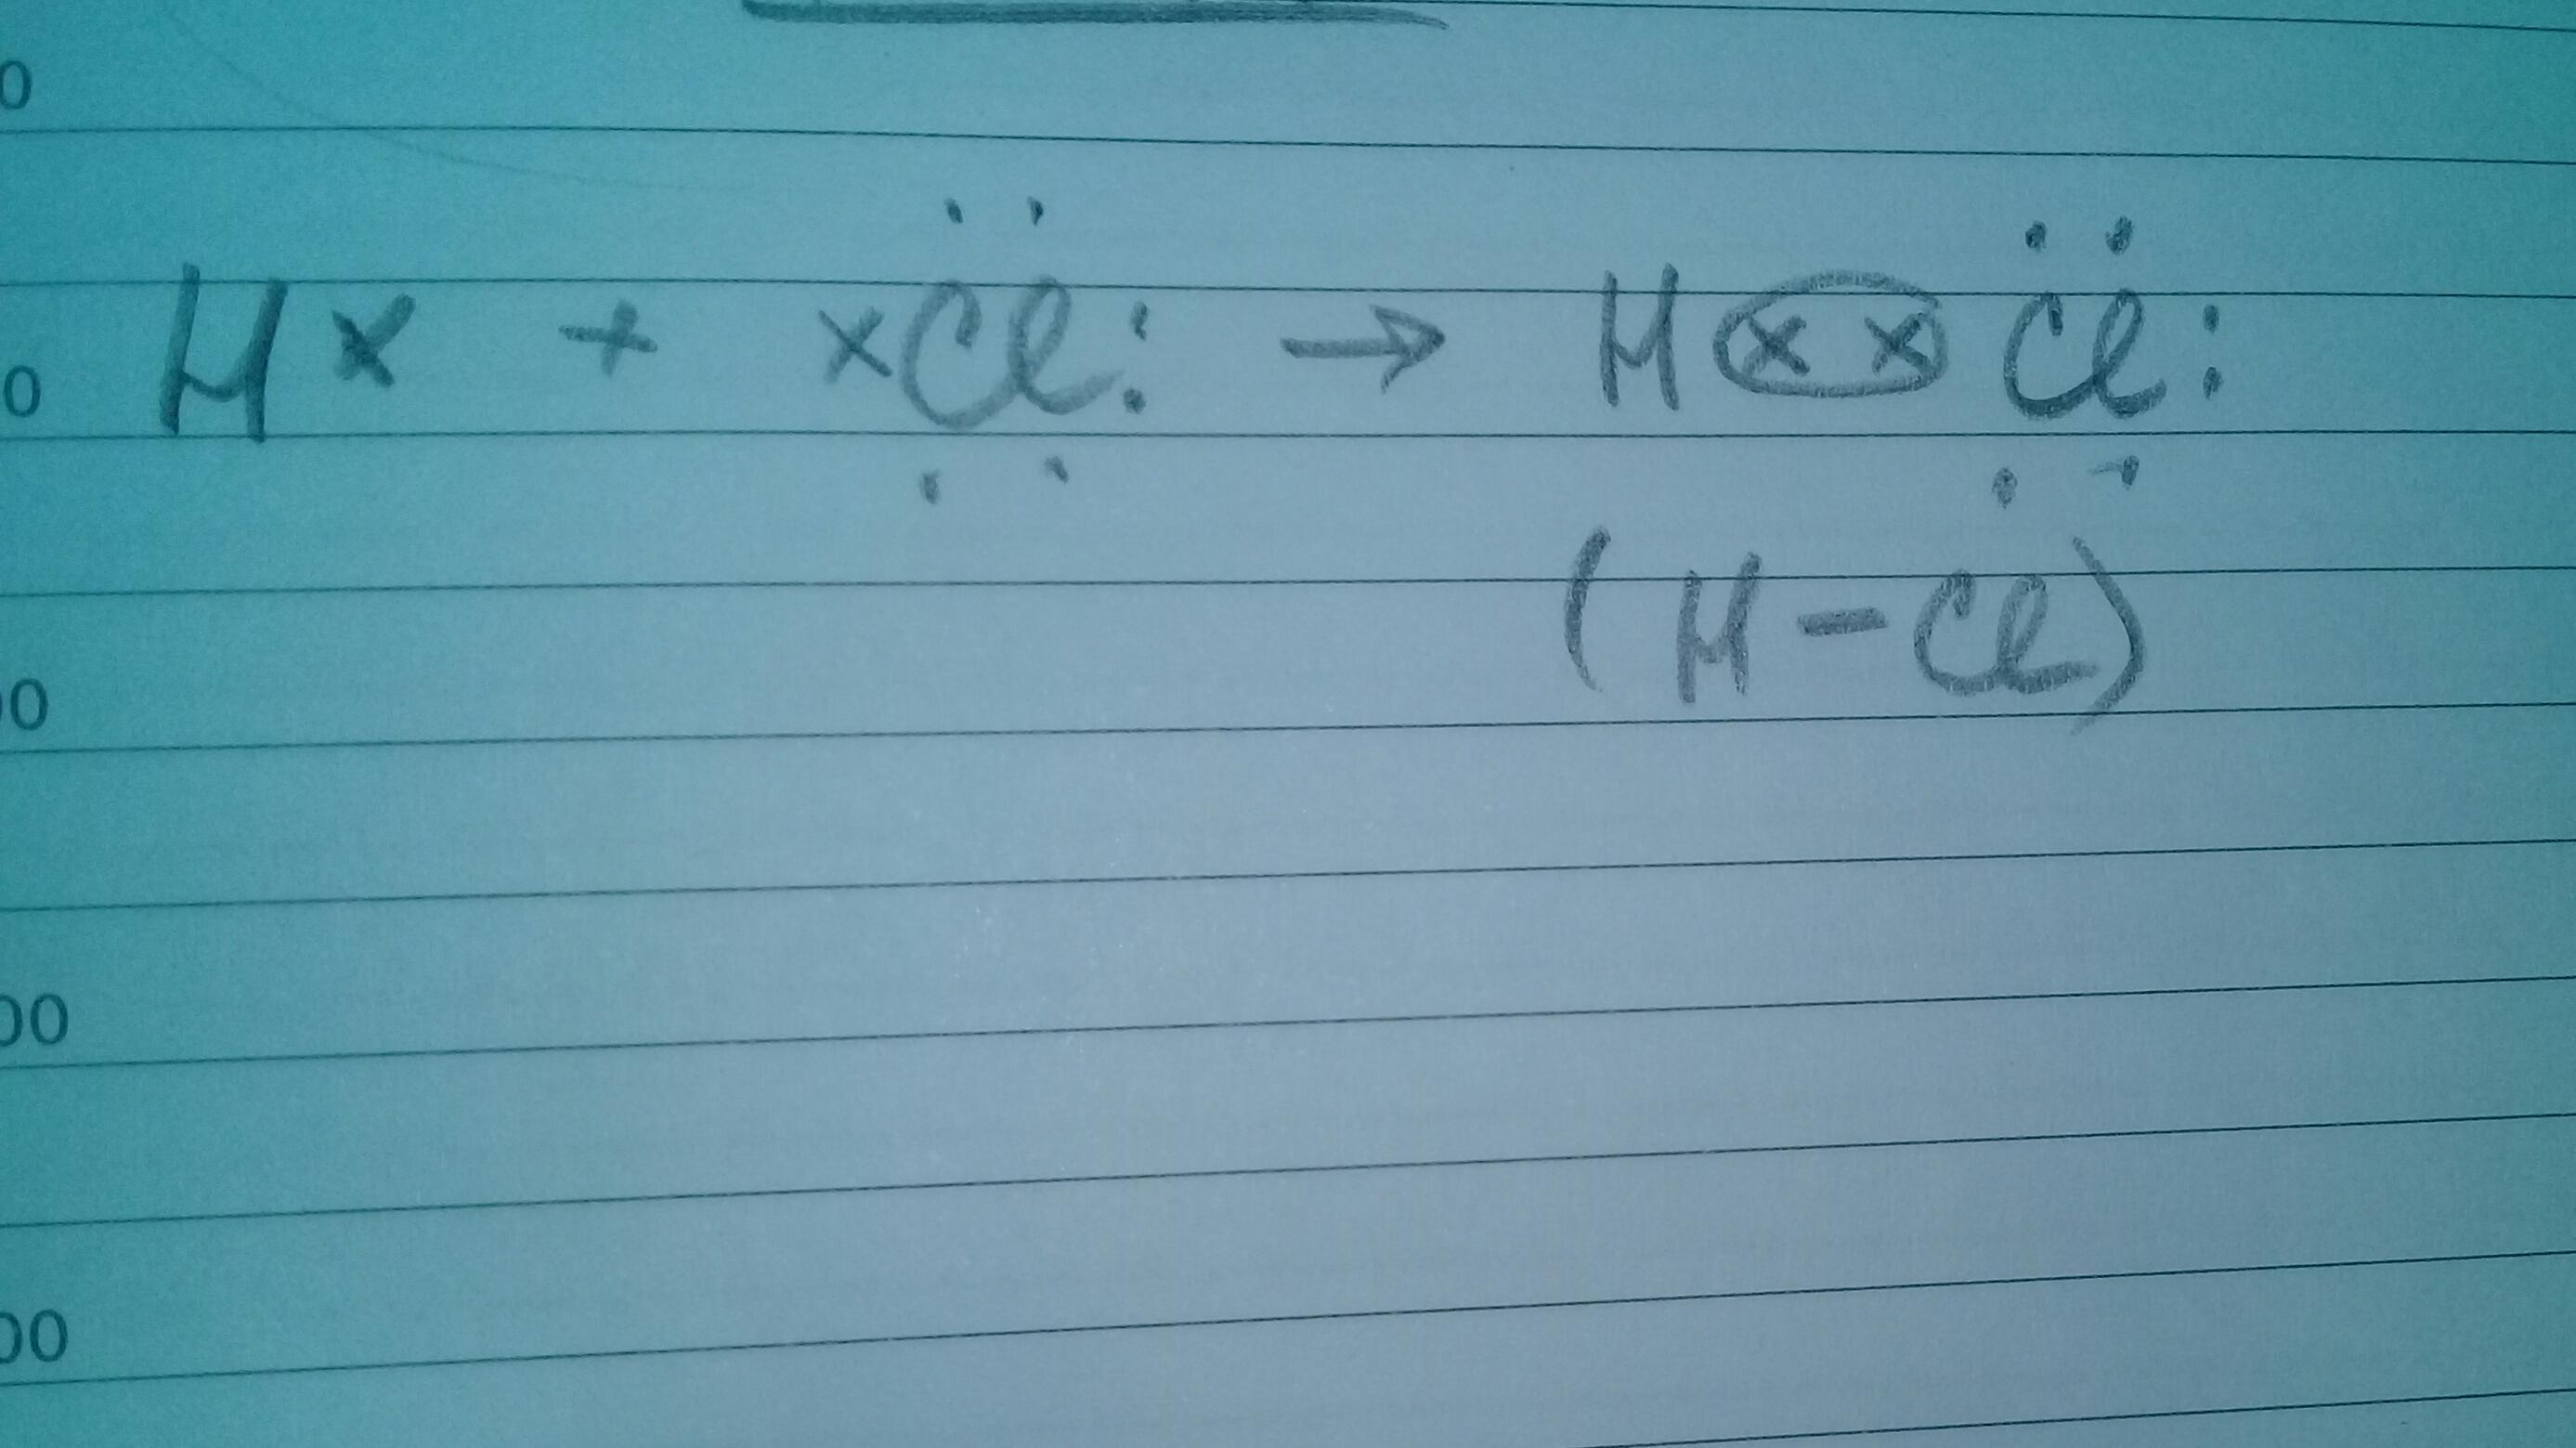 0
0 H× + ×C̤̈l: → H××C̤̈l:
(H-Cl)
00
00
00